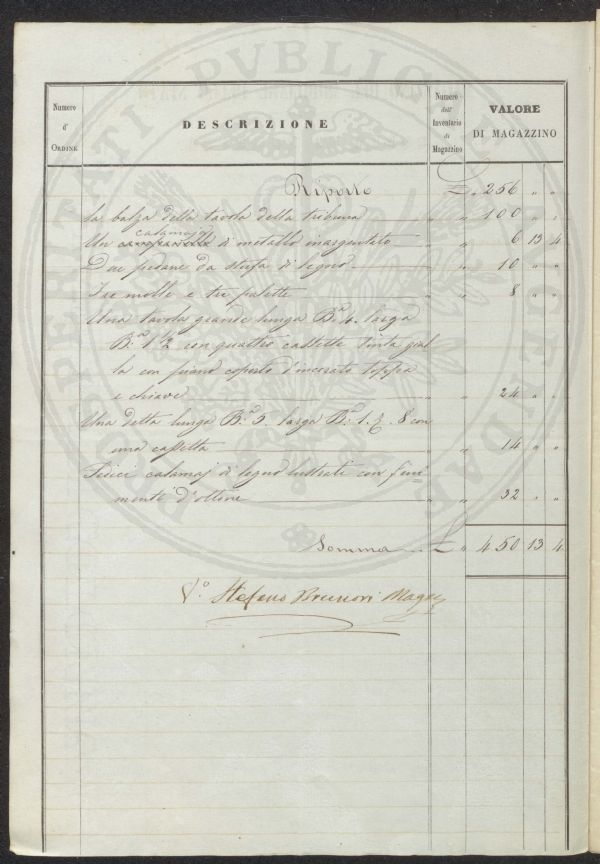 PROSPERITATI PVBLICAE AVGENDAE
Numero
d'
ORDINE
DESCRIZIONE
Numero
dell'
Inventario
di
Magazzino
VALORE
DI MAGAZZINO
Riporto £ 256 " "
La balza della tavola della tribuna " " 100 " "
calamajo
Un di metallo inargentato " " 6 13 4
Due pedane da stufa di legno " " 10 " "
Tre molle e tre palette " " 8 " "
Una tavola grande lunga Ba 4. larga
Ba 1 1/2 con quattro cassette tinta gial
la con piano coperto d'incerato toppa
e chiave " " 24 " "
Una detta lunga Ba 5. larga Ba 1. 8 con
una cassetta " " 14 " "
calamaj di legno lustrati con fini=
mento d'ottone " " 32 " "
Somma £ " 450 13 4
Vo Stefano Brunori Magaz